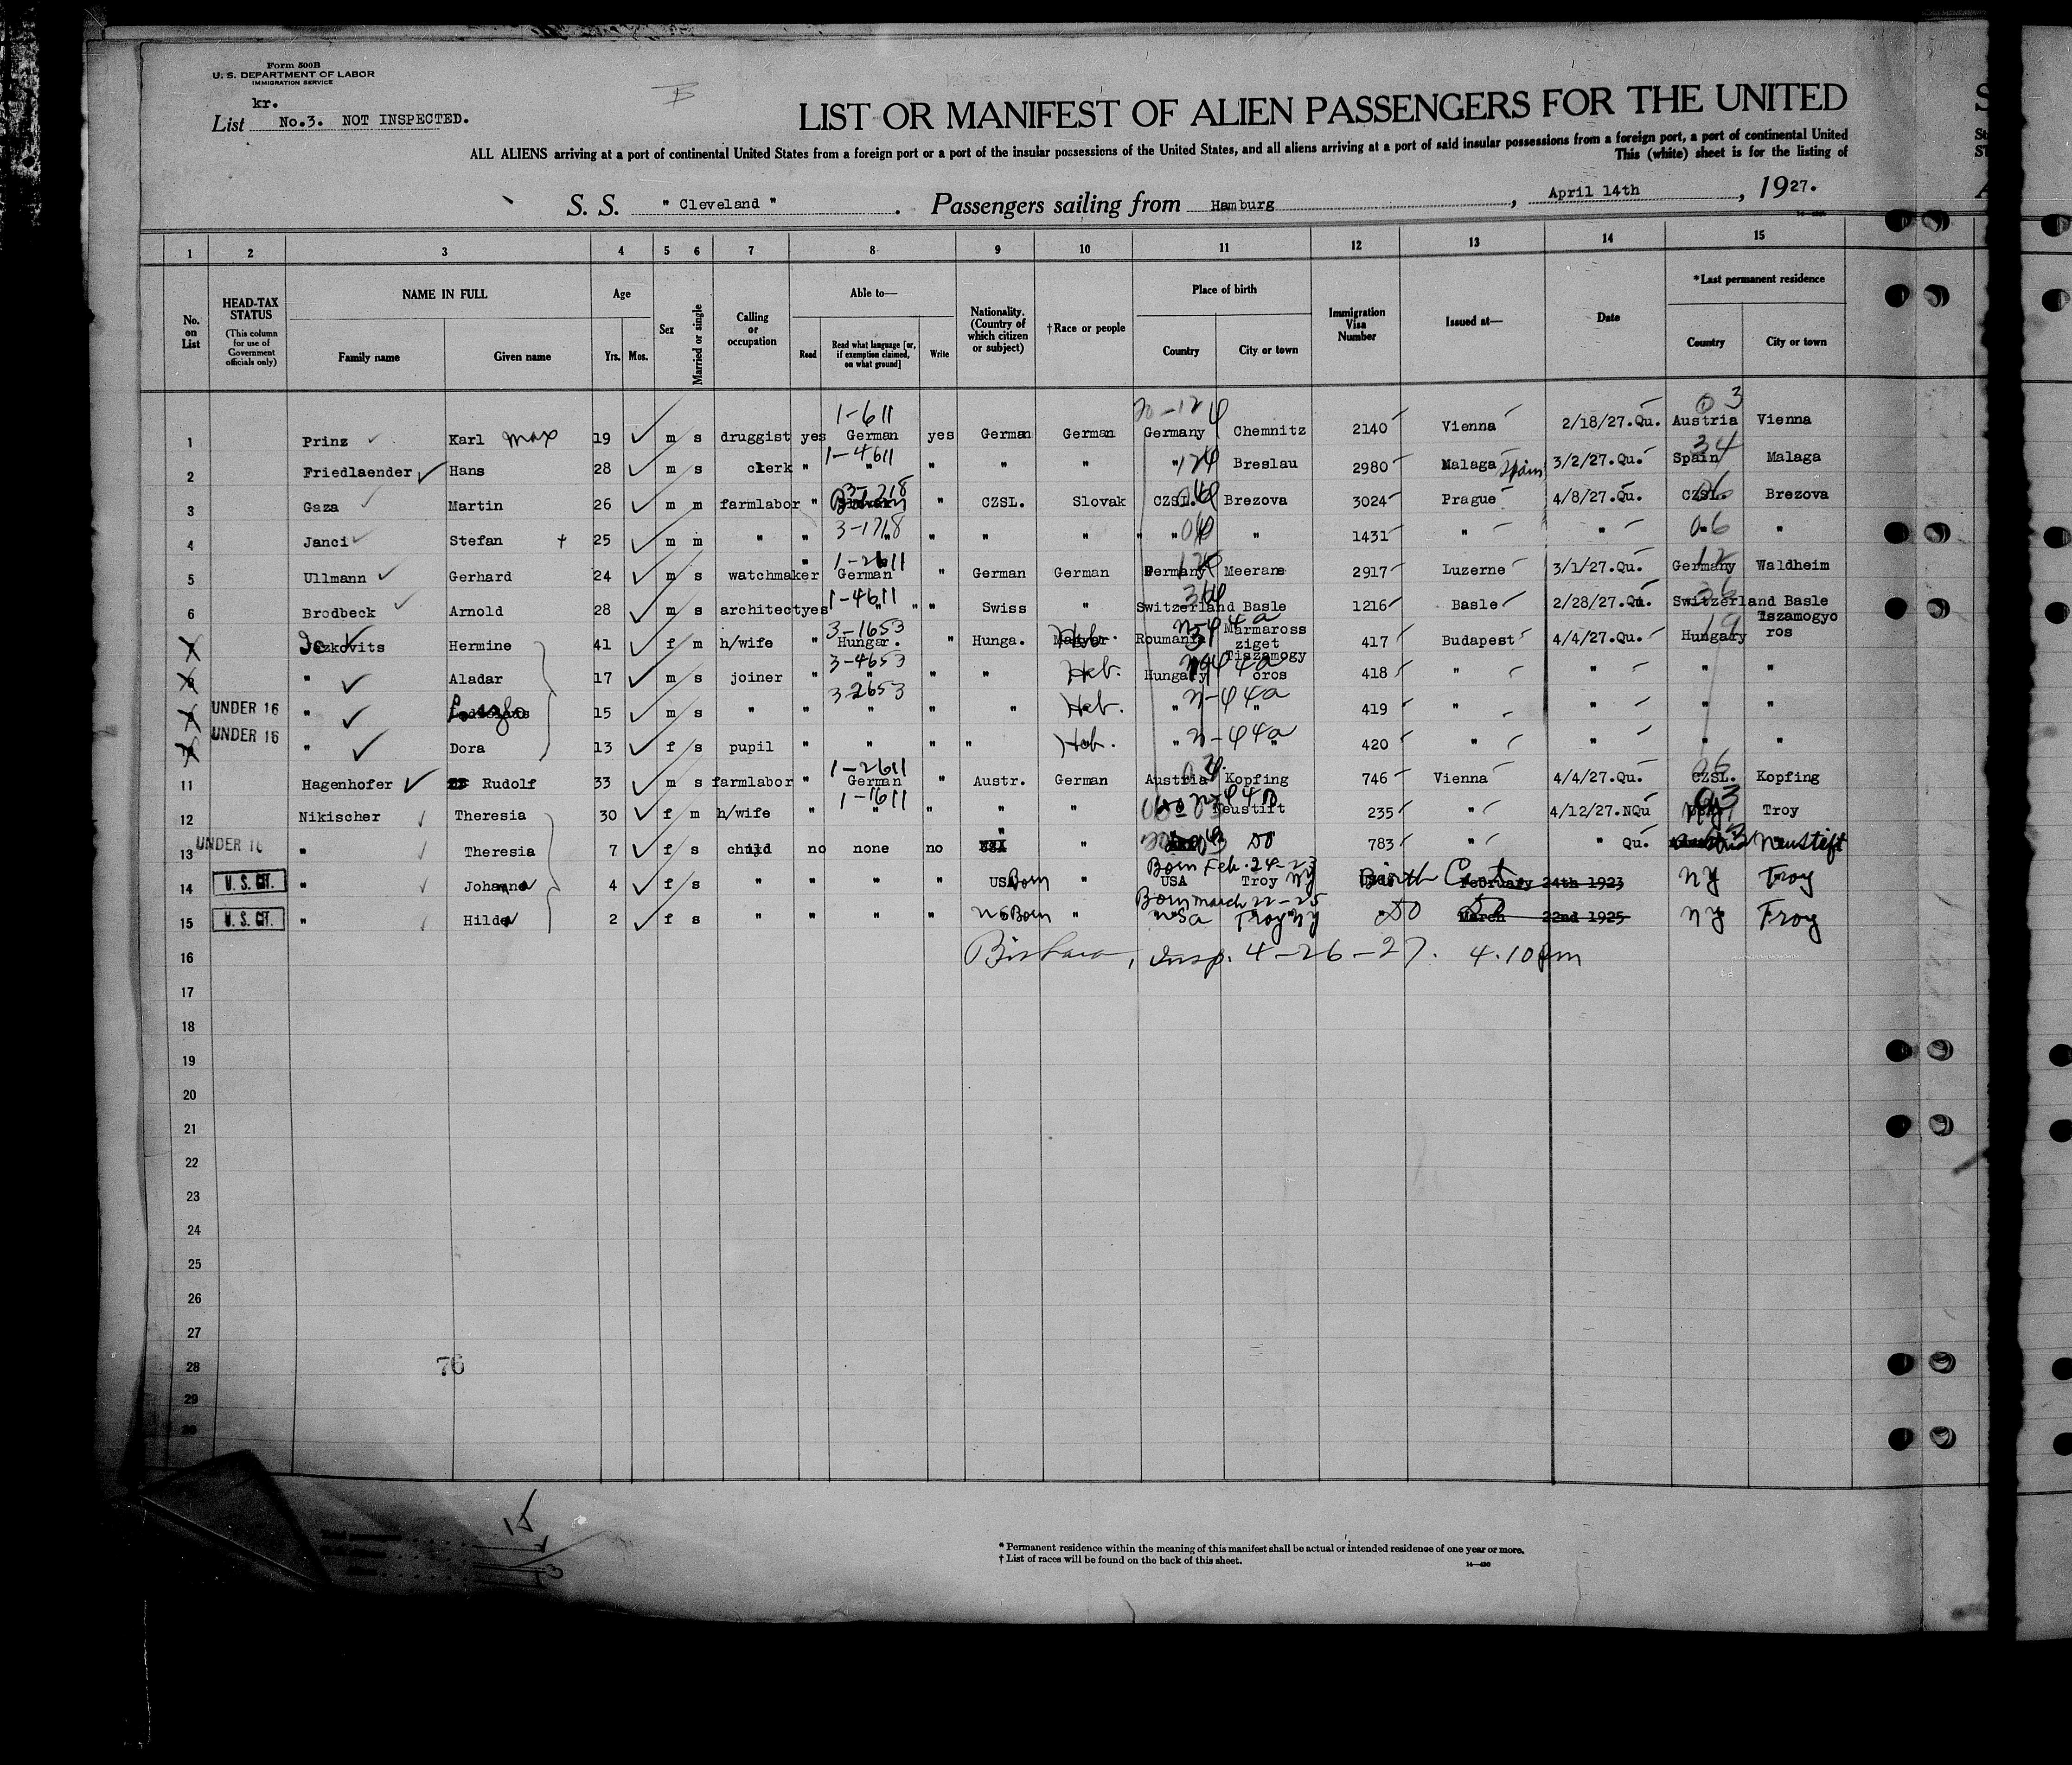 Form 500B
U. S. DEPARTMENT OF LABOR
IMMIGRATION SERVICE
kr.
List No.3. NOT INSPECTED.
LIST OR MANIFEST OF ALIEN PASSENGERS FOR THE UNITED
ALL ALIENS arriving at a port of continental United States from a foreign port or a port of the insular possessions of the United States, and all aliens arriving at a port of said insular possessions from a foreign port, a port of continental United
This (white) sheet is for the listing of
S. S. " Cleveland " . Passengers sailing from Hamburg , April 14th , 1927.
1 2 3 4 5 6 7 8 9 10 11 12 13 14 15
No. on List
HEAD-TAX STATUS (This column for use of Government officials only)
NAME IN FULL Family name Given name
Age Yrs. Mos.
Sex
Married or single
Calling or occupation
Able to— Read Read what language [or, if exemption claimed, on what ground] Write
Nationality. (Country of which citizen or subject)
†Race or people
Place of birth Country City or town
Immigration Visa Number
Issued at—
Date
*Last permanent residence Country City or town
1-611 03
1 Prinz Karl Max 19 m s druggist yes German yes German German Germany Chemnitz 2140 Vienna 2/18/27.Qu. Austria Vienna
1-4611 34
2 Friedlaender Hans 28 m s clerk " " " " " " Breslau 2980 Malaga Spain 3/2/27.Qu. Spain Malaga
3-218
3 Gaza Martin 26 m m farmlabor " " CZSL. Slovak CZSL. Brezova 3024 Prague 4/8/27.Qu. CZSL. Brezova
3-1718 06
4 Janci Stefan † 25 m m " " " " " " " " 1431 " " " "
1-2611 12
5 Ullmann Gerhard 24 m s watchmaker " German " German German Germany Meerane 2917 Luzerne 3/1/27.Qu. Germany Waldheim
1-4611 36
6 Brodbeck Arnold 28 m s architect yes " " Swiss " Switzerland Basle 1216 Basle 2/28/27.Qu. Switzerland Basle
3-1653 19
7 Iczkovits Hermine 41 f m h/wife " Hungar. " Hunga. Magyar Heb. Roumania Marmaross ziget 417 Budapest 4/4/27.Qu. Hungary Tszamogyo ros
3-4653
8 " Aladar 17 m s joiner " " " " Heb. Hungary Tiszamogy oros 418 " " " "
3-2653
UNDER 16
9 " Laszlo 15 m s " " " " " Heb. " " 419 " " " "
UNDER 16
10 " Dora 13 f s pupil " " " " Heb. " " 420 " " " "
1-2611 06
11 Hagenhofer Rudolf 33 m s farmlabor " German " Austr. German Austria Kopfing 746 Vienna 4/4/27.Qu. CZSL. Kopfing
1-1611 03
12 Nikischer Theresia 30 f m h/wife " " " " " Neustift 235 " 4/12/27.NQu Troy
UNDER 16
13 " Theresia 7 f s child no none no " USA " Do 783 " " Qu. Neustift
Born Feb. 24-23
U. S. CIT.
14 " Johanna 4 f s " " " " US Born " USA Troy NY Birth Cert February 24th 1923 NY Troy
Born March 22-25
U. S. CIT.
15 " Hilda 2 f s " " " " US Born " USA Troy NY Do Do March 22nd 1925 NY Troy
16 Insp. 4-26-27. 4.10 pm
17
18
19
20
21
22
23
24
25
26
27
28 76
29
30
15
* Permanent residence within the meaning of this manifest shall be actual or intended residence of one year or more.
† List of races will be found on the back of this sheet.